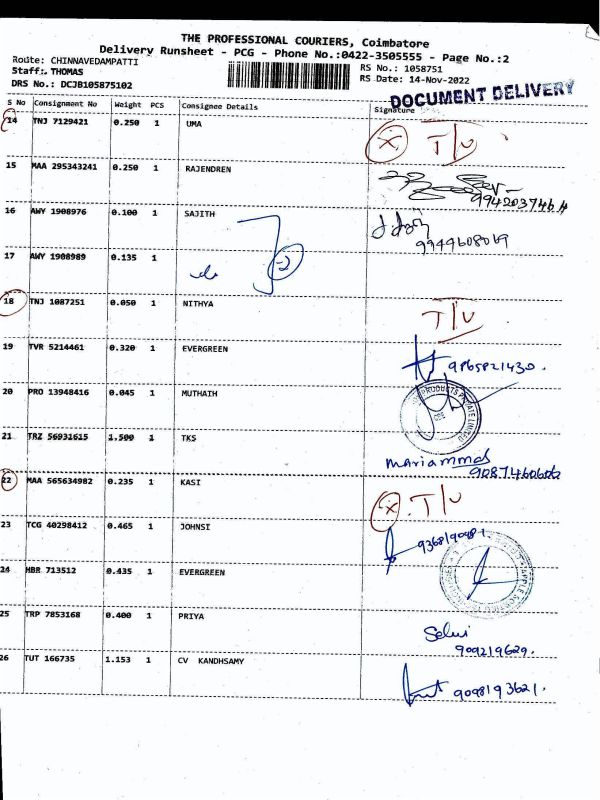 THE PROFESSIONAL COURIERS, Coimbatore
Delivery Runsheet - PCG - Phone No.:0422-3505555 - Page No.:2
Route: CHINNAVEDAMPATTI
RS No.: 1058751
Staff:. THOMAS
RS Date: 14-Nov-2022
DRS No.: DCJB105875102
DOCUMENT DELIVERY
S No Consignment No Weight PCS Consignee Details Signature
14 TNJ 7129421 0.250 1 UMA
X T/U
15 MAA 295343241 0.250 1 RAJENDREN
9942037464
16 AWY 1908976 0.100 1 SAJITH
9949608069
17 AWY 1908989 0.135 1
do
-2
18 TNJ 1087251 0.050 1 NITHYA
T/U
19 TVR 5214461 0.320 1 EVERGREEN
9865821430.
20 PRO 13948416 0.045 1 MUTHAIH
PRODUCTS PRIVATE LIMITED
21 TRZ 56931615 1.500 1 TKS
Mariammal
9087460606
22 MAA 565634982 0.235 1 KASI
X T/U
23 TCG 40298412 0.465 1 JOHNSI
24 HBR 713512 0.435 1 EVERGREEN
25 TRP 7853168 0.400 1 PRIYA
Selvi
909219629.
26 TUT 166735 1.153 1 CV KANDHSAMY
9098193621.